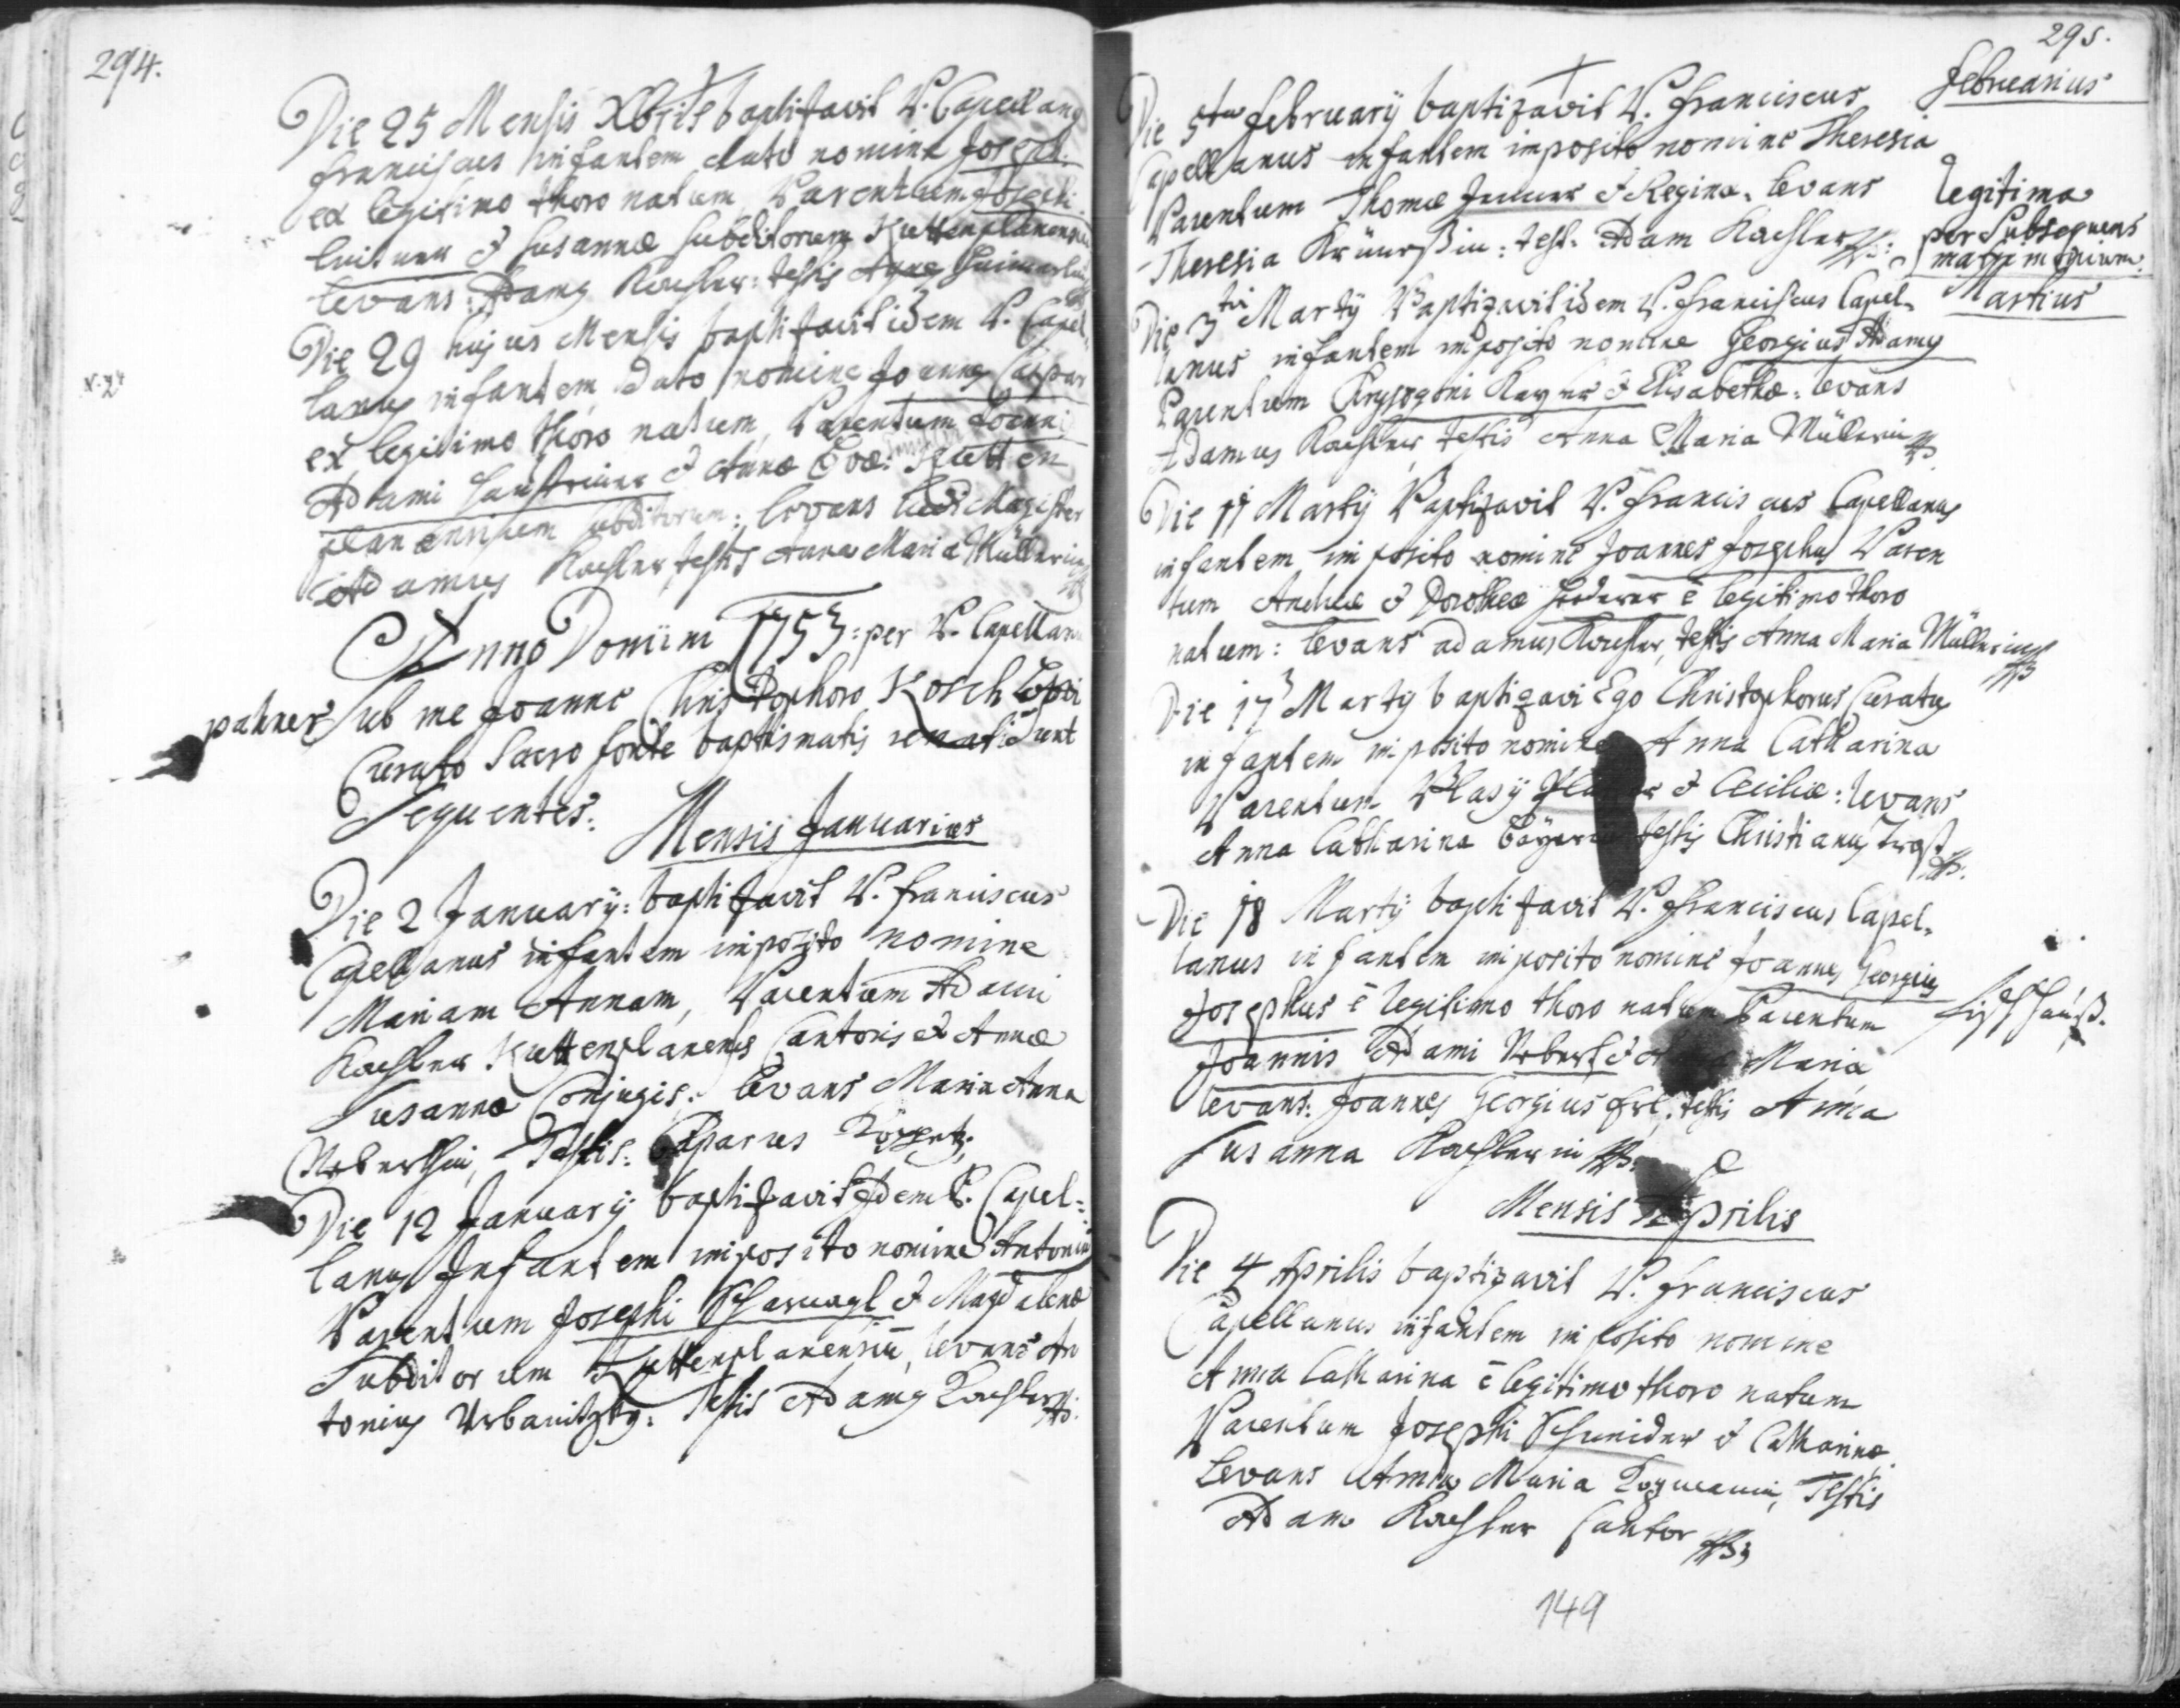 294.
Die 25 Mensis Xbris baptisavit P. Capellang
Franciscus infantem dato nomine Joseph.
ex legitimo thoro natum, Parentum Josephi
& Susannæ subditorum Kuttenplanensiu
levans: Adamg Kochler: testis
Die 29 hujus Mensis baptisavit idem P. Capel-
lanus infantem dato nomine Joannes Caspar
N. 24
ex legitimo thoro natum, Parentum Joanni
Adami & Annæ Evæ. Kutten
planensium subditorum: levans Ludi Magister
Adamus Kochler, testis Anna Maria Müllerin
Anno Domini 1753: per P. Capellanu
sub me Joanne Christophoro Kosch
Curato Sacro fonte baptismatis renati sunt
Sequentes:
Mensis Januarius
Die 2 January: baptisavit P. Franciscus
Capellanus infantem imposito nomine
Mariam Annam, Parentum Adami
Kochler Kuttenplanensis Cantoris et Annæ
Susannæ Conjugis: levans Maria Anna
Testis: Casparus
Die 12 January baptisavit Idem P. Capel=
lanus Infantem imposito nomine Antonius
Parentum Josephi Scharnagl & Magdalenæ
Subditorum Kuttenplanensiū, levans An
tonius Urbanitzky: Testis Adamg Kochler
295.
Februarius
Die 5ta February baptizavit P. Franciscus
Capellanus infantem imposito nomine Theresia
Parentum Thomæ & Reginæ. levans
Theresia test: Adam Kochler
Legitima
per Subsequens
matrimonium.
Martius
Die 3tia Martÿ Baptizavit idem P. Franciscus Capel-
lanus infantem imposito nomine Georgius Adamg
Parentum Chrysogoni & Elisabethæ: levans
Adamus Kochler, testis Anna Maria Müllerin
Die 11 Martÿ Baptizavit P. Franciscus Capellanus
infantem imposito nomine Joannes Josephus Paren
tum Andreæ & Dorotheæ ē legitimo thoro
natum: levans adamus Kochler, testis Anna Maria Müllerin
Die 17 Martÿ baptizavi Ego Christophorus Curatus
infantem imposito nomine Anna Catharina
Parentum Blasÿ & Ceciliæ: levans
Anna Catharina testis Christianus
Die 18 Martÿ baptisavit P. Franciscus Capel-
lanus infantem imposito nomine Joannes Georgius
Josephus ē legitimo thoro natum Parentum
Joannis Adami & Maria
levans: Joannes Georgius testis Anna
Susanna Kochlerin
Mensis Aprilis
Die 4 Aprilis baptizavit P. Franciscus
Capellanus infantem imposito nomine
Anna Catharina ē legitimo thoro natum
Parentum Josephi Schneider & Catharinæ.
Levans Anna Maria Testis
Adam Kochler Cantor
149